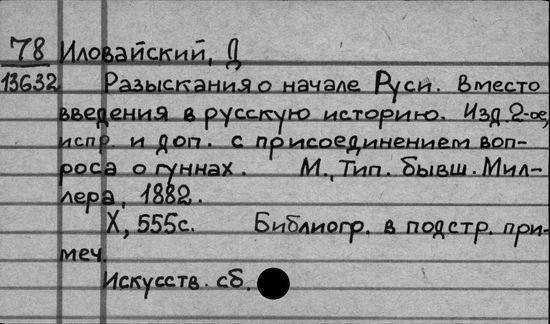 78 Иловайский, Д
13632 Разыскания о начале Руси. Вместо
введения в русскую историю. Изд. 2-ое,
испр. и доп. с присоединением воп-
роса о гуннах. М., Тип. бывш. Мил-
лера, 1882.
X, 555с. Библиогр. в подстр. при-
меч.
Искусств. сб.